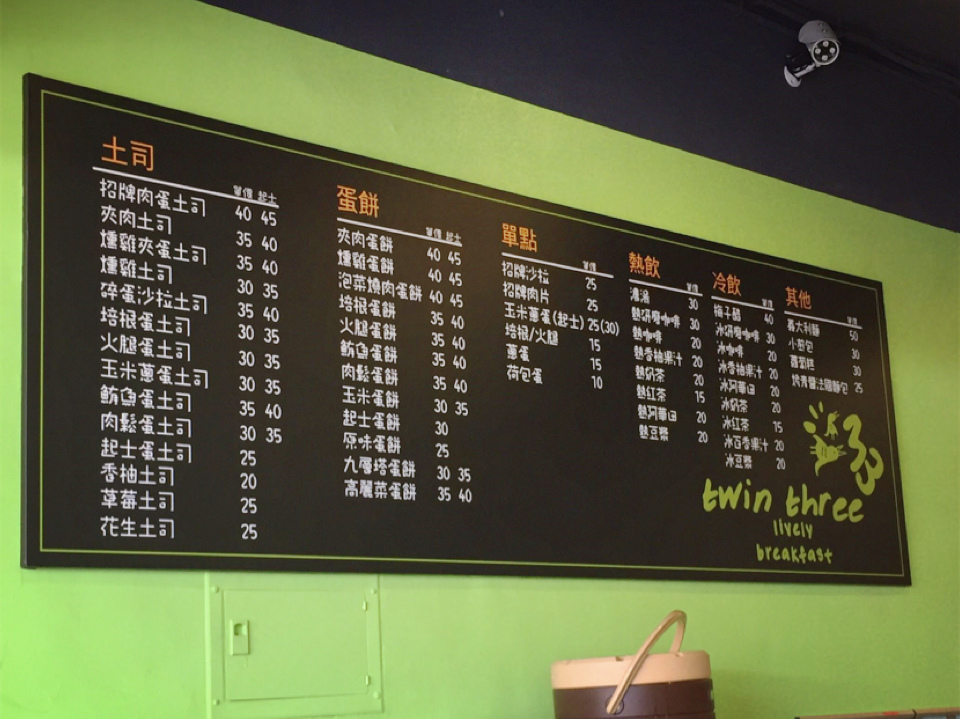 土司
單價 起士
招牌肉蛋土司 40 45
夾肉土司 35 40
燻雞夾蛋土司 35 40
燻雞土司 30 35
碎蛋沙拉土司 35 40
培根蛋土司 30 35
火腿蛋土司 30 35
玉米蔥蛋土司 30 35
鮪魚蛋土司 35 40
肉鬆蛋土司 30 35
起士蛋土司 25
香柚土司 20
草莓土司 25
花生土司 25
蛋餅
單價 起士
夾肉蛋餅 40 45
燻雞蛋餅 40 45
泡菜燒肉蛋餅 40 45
培根蛋餅 35 40
火腿蛋餅 35 40
鮪魚蛋餅 35 40
肉鬆蛋餅 35 40
玉米蛋餅 30 35
起士蛋餅 30
原味蛋餅 25
九層塔蛋餅 30 35
高麗菜蛋餅 35 40
單點
單價
招牌沙拉 25
招牌肉片 25
玉米蔥蛋(起士) 25(30)
培根/火腿 15
蔥蛋 15
荷包蛋 10
熱飲
單價
濃湯 30
熱研磨咖啡 30
熱咖啡 20
熱香柚果汁 20
熱奶茶 20
熱紅茶 15
熱阿華田 20
熱豆漿 20
冷飲
單價
梅子醋 40
冰研磨咖啡 30
冰咖啡 20
冰香柚果汁 20
冰阿華田 20
冰奶茶 20
冰紅茶 15
冰百香果汁 20
冰豆漿 20
其他
單價
義大利麵 50
小煎包 30
蘿蔔糕 30
烤青醬法國麵包 25
33
twin three
lively
breakfast